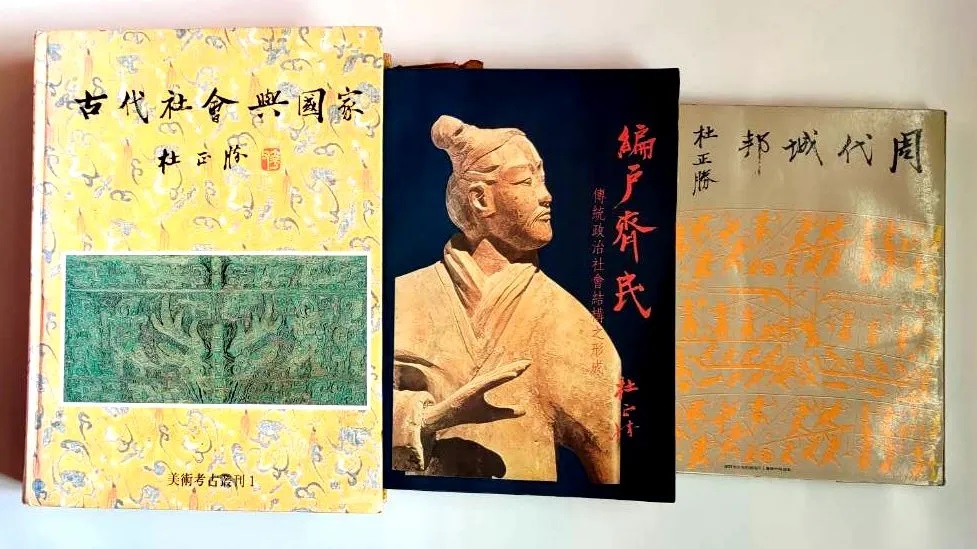 古代社會與國家
杜正勝
美術考古叢刊1
編戶齊民
傳統政治社會結構之形成
杜正勝
周代城邦
杜正勝